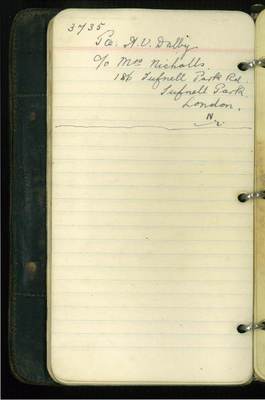 3735
Pte. A. V. Dalby
c/o Mrs Nicholls.
186 Tufnell Park Rd.
Tufnell Park.
London.
N.